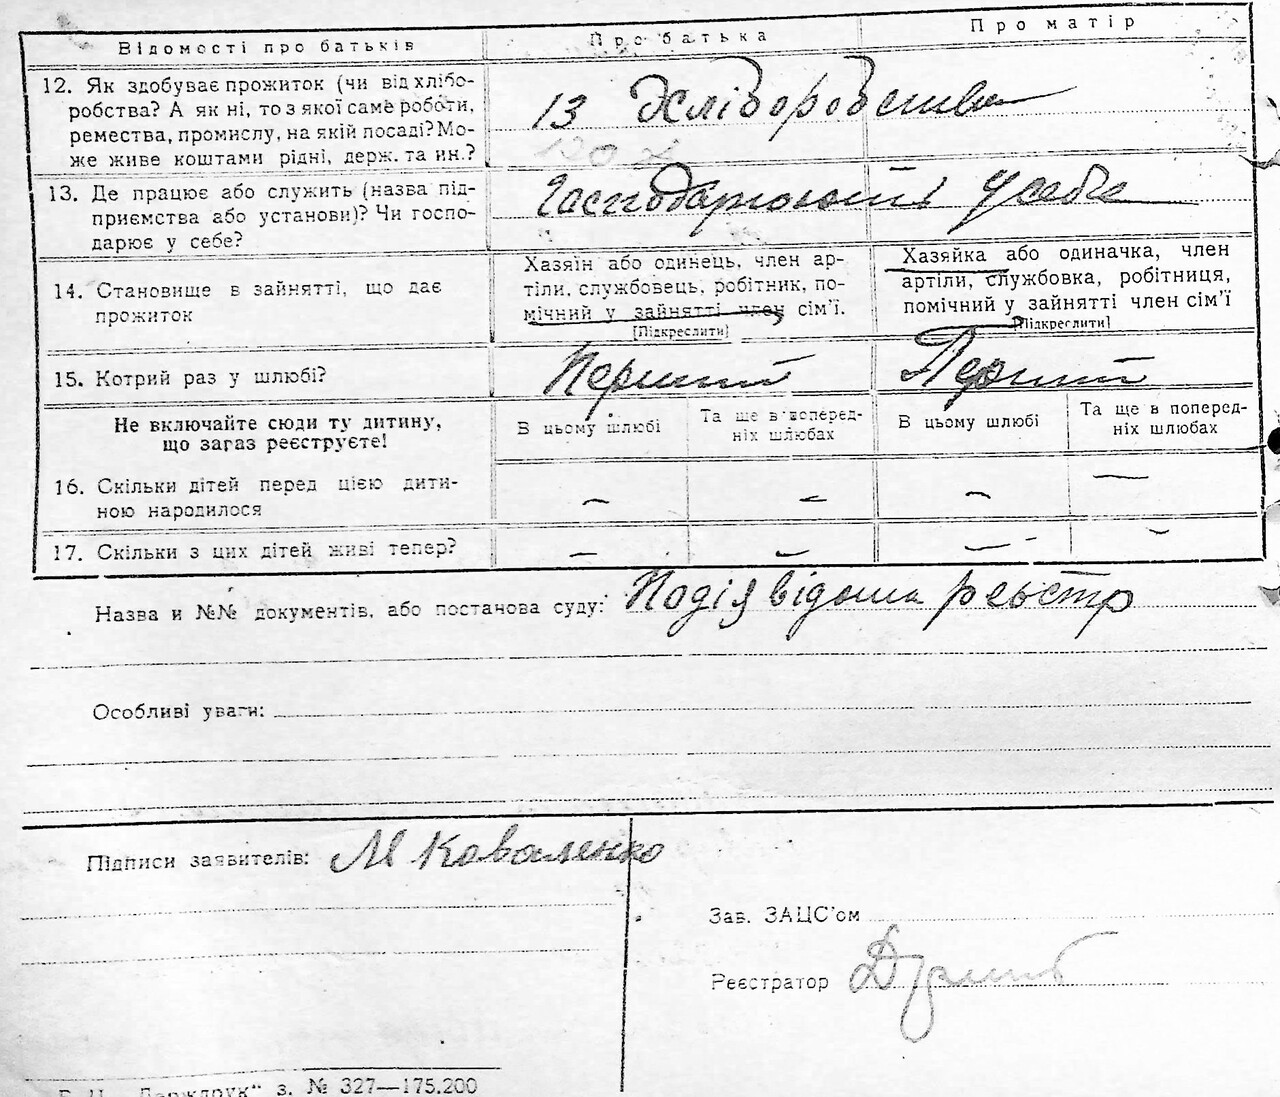 Відомості про батьків Про батька Про матір
12. Як здобуває прожиток (чи від хлібо-
робства? А як ні, то з якої саме роботи,
ремества, промислу, на якій посаді? Мо-
же живе коштами рідні, держ. та ин.?
13 Хліборобства
13. Де працює або служить (назва під-
приємства або установи)? Чи госпо-
дарює у себе?
Господарюють у себе
14. Становище в зайнятті, що дає
прожиток
Хазяїн або одинець, член ар-
тіли, службовець, робітник, по-
мічний у зайнятті член сім'ї.
[Підкреслити]
Хазяйка або одиначка, член
артіли, службовка, робітниця,
помічний у зайнятті член сім'ї
[Підкреслити]
15. Котрий раз у шлюбі? Перший Перший
Не включайте сюди ту дитину,
що зараз реєструєте!
В цьому шлюбі
Та ще в поперед-
ніх шлюбах
В цьому шлюбі
Та ще в поперед-
ніх шлюбах
16. Скільки дітей перед цією дити-
ною народилося
– – – –
17. Скільки з цих дітей живі тепер? – – – –
Назва и №№ документів, або постанова суду: Подія відома реєстр
Особливі уваги:
Підписи заявителів: М Коваленко
Зав. ЗАЦС'ом
Реєстратор
Держдрук" з. № 327—175.200